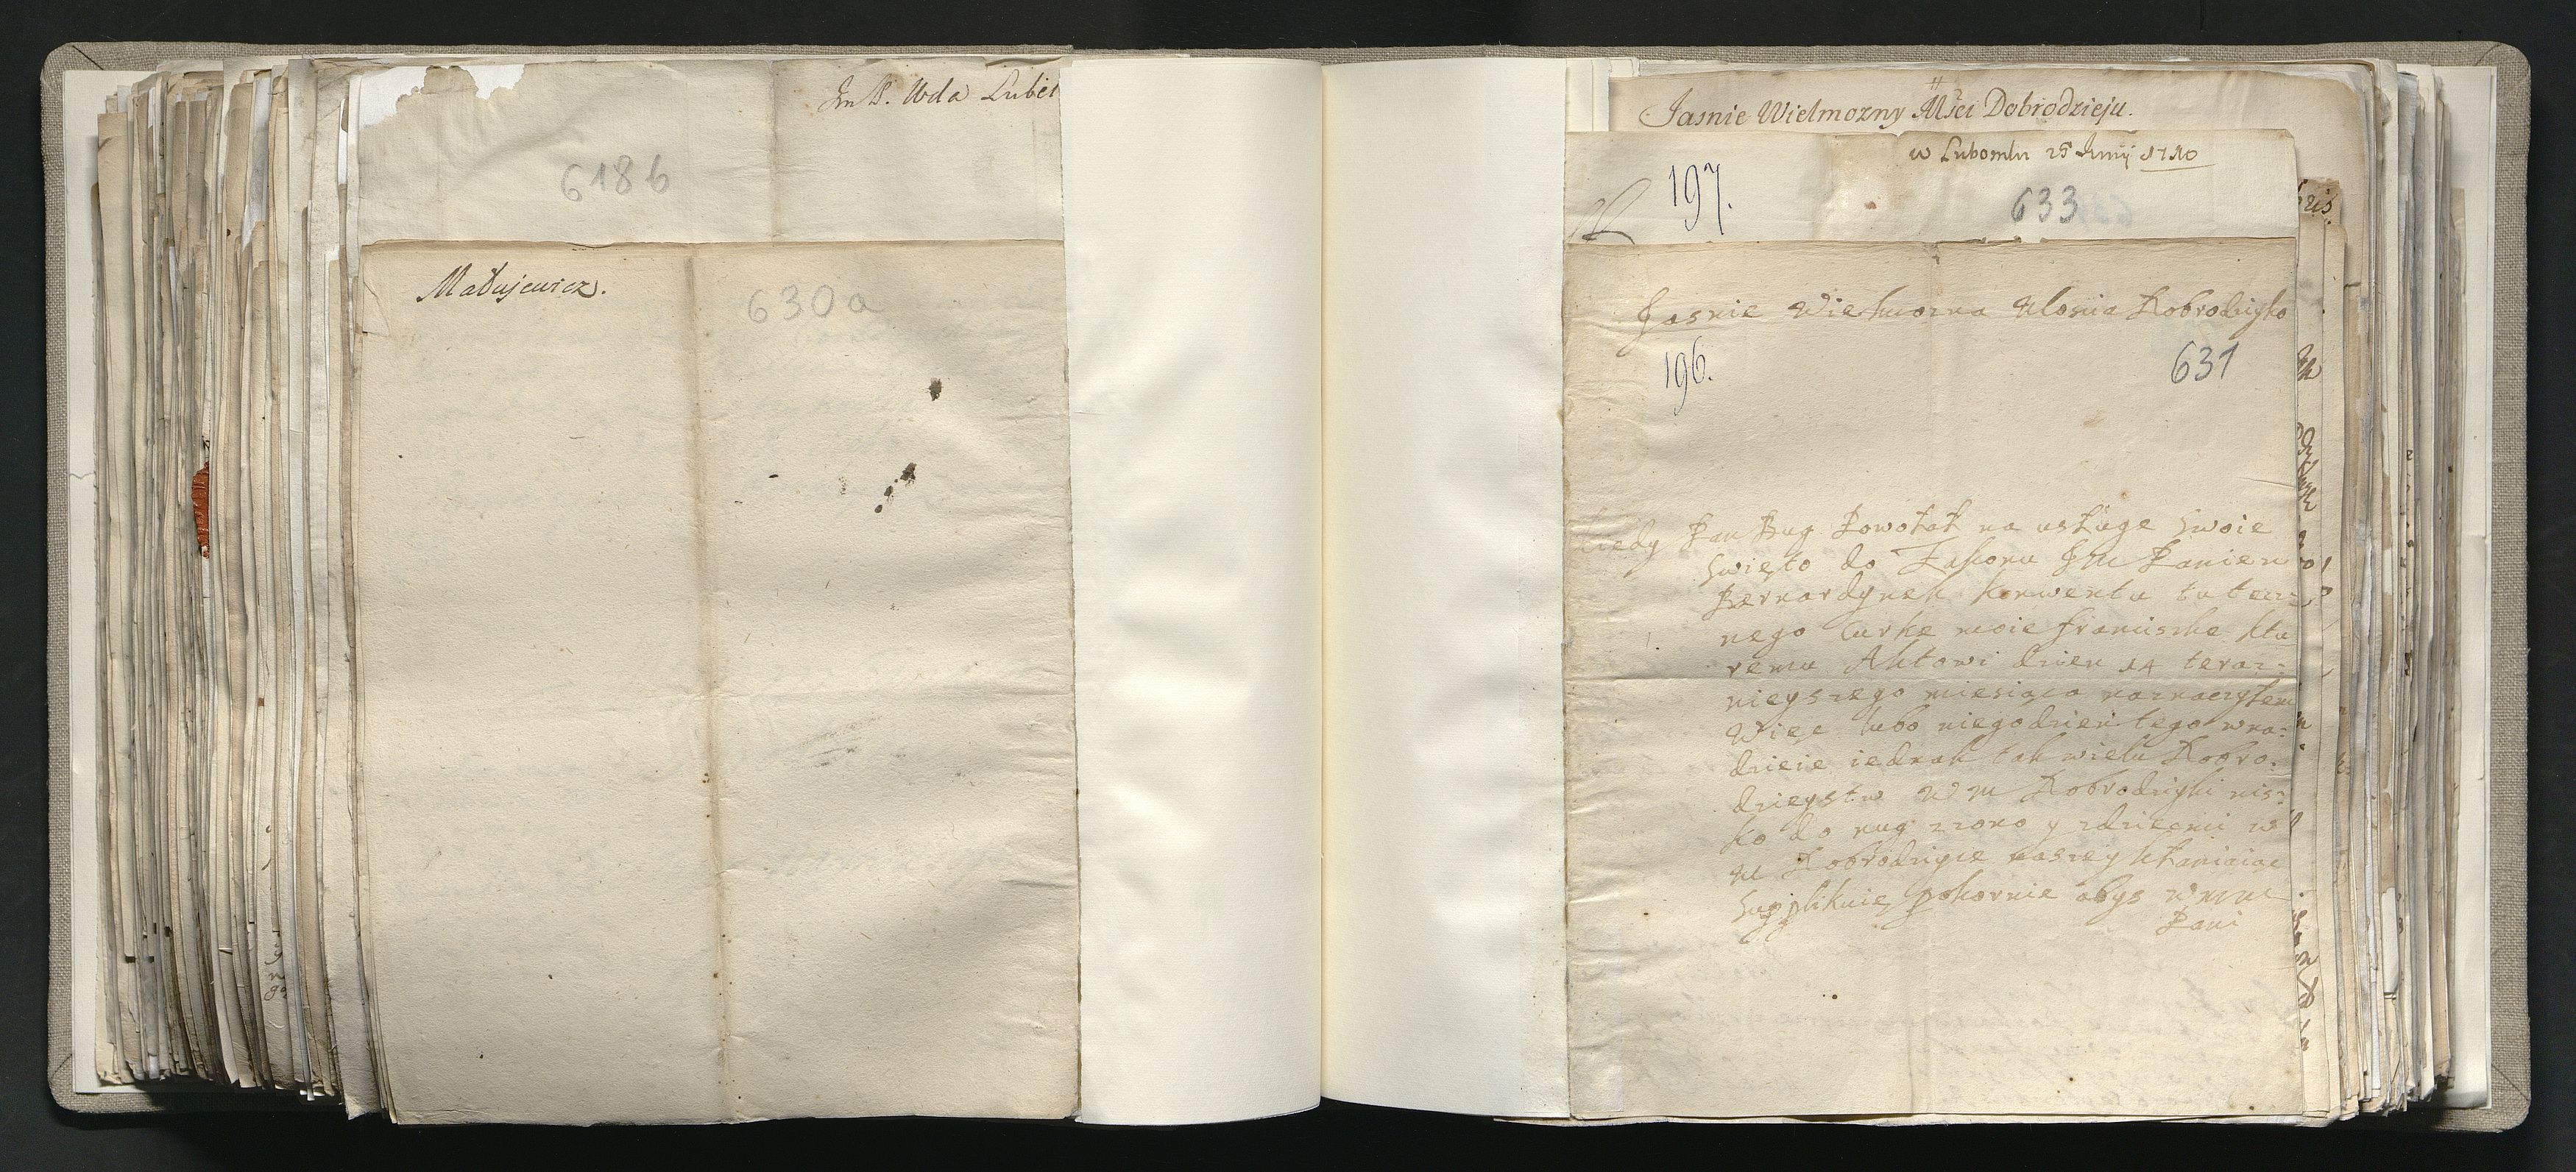 Jm P. Wda Lubel
618b
Matujewicz.
630a
Jasnie Wielmozny Msci Dobrodzieju.
w Lubomlu 25 Junij 1710
197.
633
Jasnie Wielmozna Mosia Dobrodziyko
196.
631
kiedy Pan Bug Powołał na usługe Swoie
Swięto do Zakonu Jm Panien
Bernardynek konwentu tutecz=
nego Curke moie franciszke ktu
remu Aktowi dzien 14 teraz=
nieyszego miesiąca naznaczyłem
Więc lubo niegodzien tego wna=
dzieie iednak tak wielu Dobro=
dzieystw W M Dobrodziyki nis=
ko do nug zzono y zdziecmi w
M Dobrodziyce naszey kłaniaiąc
Supplikuię pokornie abys W M M
Pani